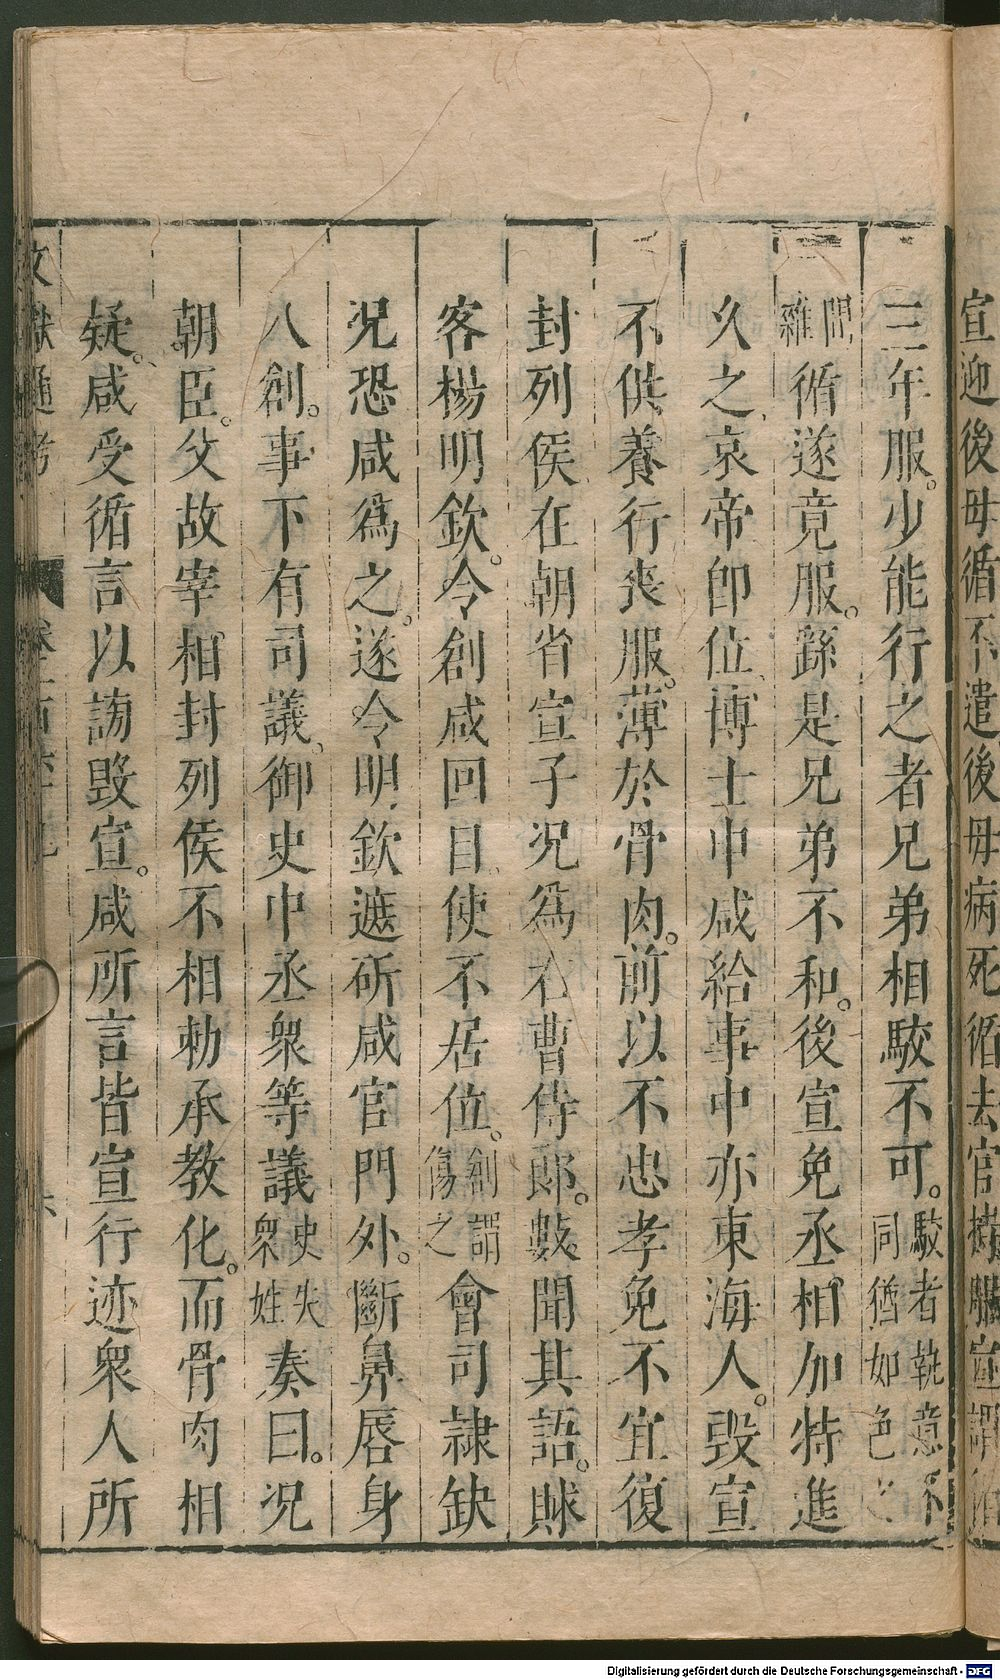 宣迎後母循不遣後母病死循去官持服宣謂循
三年服。少能行之者兄弟相駮不可。駮者執意不同猶如色之
間雜循遂竟服。繇是兄弟不和。後宣免丞相加特進
久之、哀帝卽位、博士申咸給事中亦東海人。毀宣
不供養行喪服。薄於骨肉。前以不忠孝免不宜復
封列侯在朝省宣子况爲右曹侍郎。數聞其語。賕
客楊明欽。令創咸回目使不居位。創謂傷之會司隷缺
况恐咸爲之。遂令明欽遮斫咸官門外。斷鼻唇身
八創。事下有司議、御史中丞衆等議史失衆姓奏曰。况
朝臣。父故宰相封列侯不相勑承敎化。而骨肉相
疑。咸受循言以謗毀宣。咸所言皆宣行迹衆人所
文獻通考
六
Digitalisierung gefördert durch die Deutsche Forschungsgemeinschaft - DFG